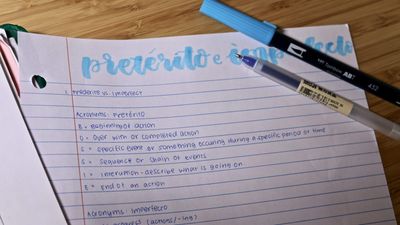 pretérito e imperfecto
1. Preterite vs. Imperfect
Acronyms: Pretérito
B = Beginning of action
O = Over with or completed action
S = Specific Event or something occuring during a specific period of time
S = Sequence or chain of events
I = interuption - describe what is going on
E = End of an action
Acronyms: Imperfecto
(actions/-ing)
ABT
452